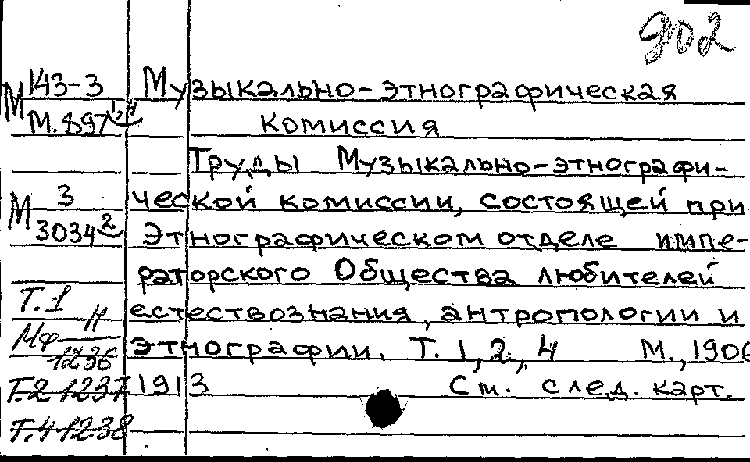 902
М 143-3
М.897 12 н
М 3
3034 2
Т.1
Мф н
1236
Т.2 1237
Т.4 1238
Музыкально-этнографическая
комиссия
Труды Музыкально-этнографи-
ческой комиссии, состоящей при
этнографическом отделе импе-
раторского Общества любителей
естествознания, антропологии и
этнографии. Т. 1, 2, 4 М., 1906
1913 См. след. карт.